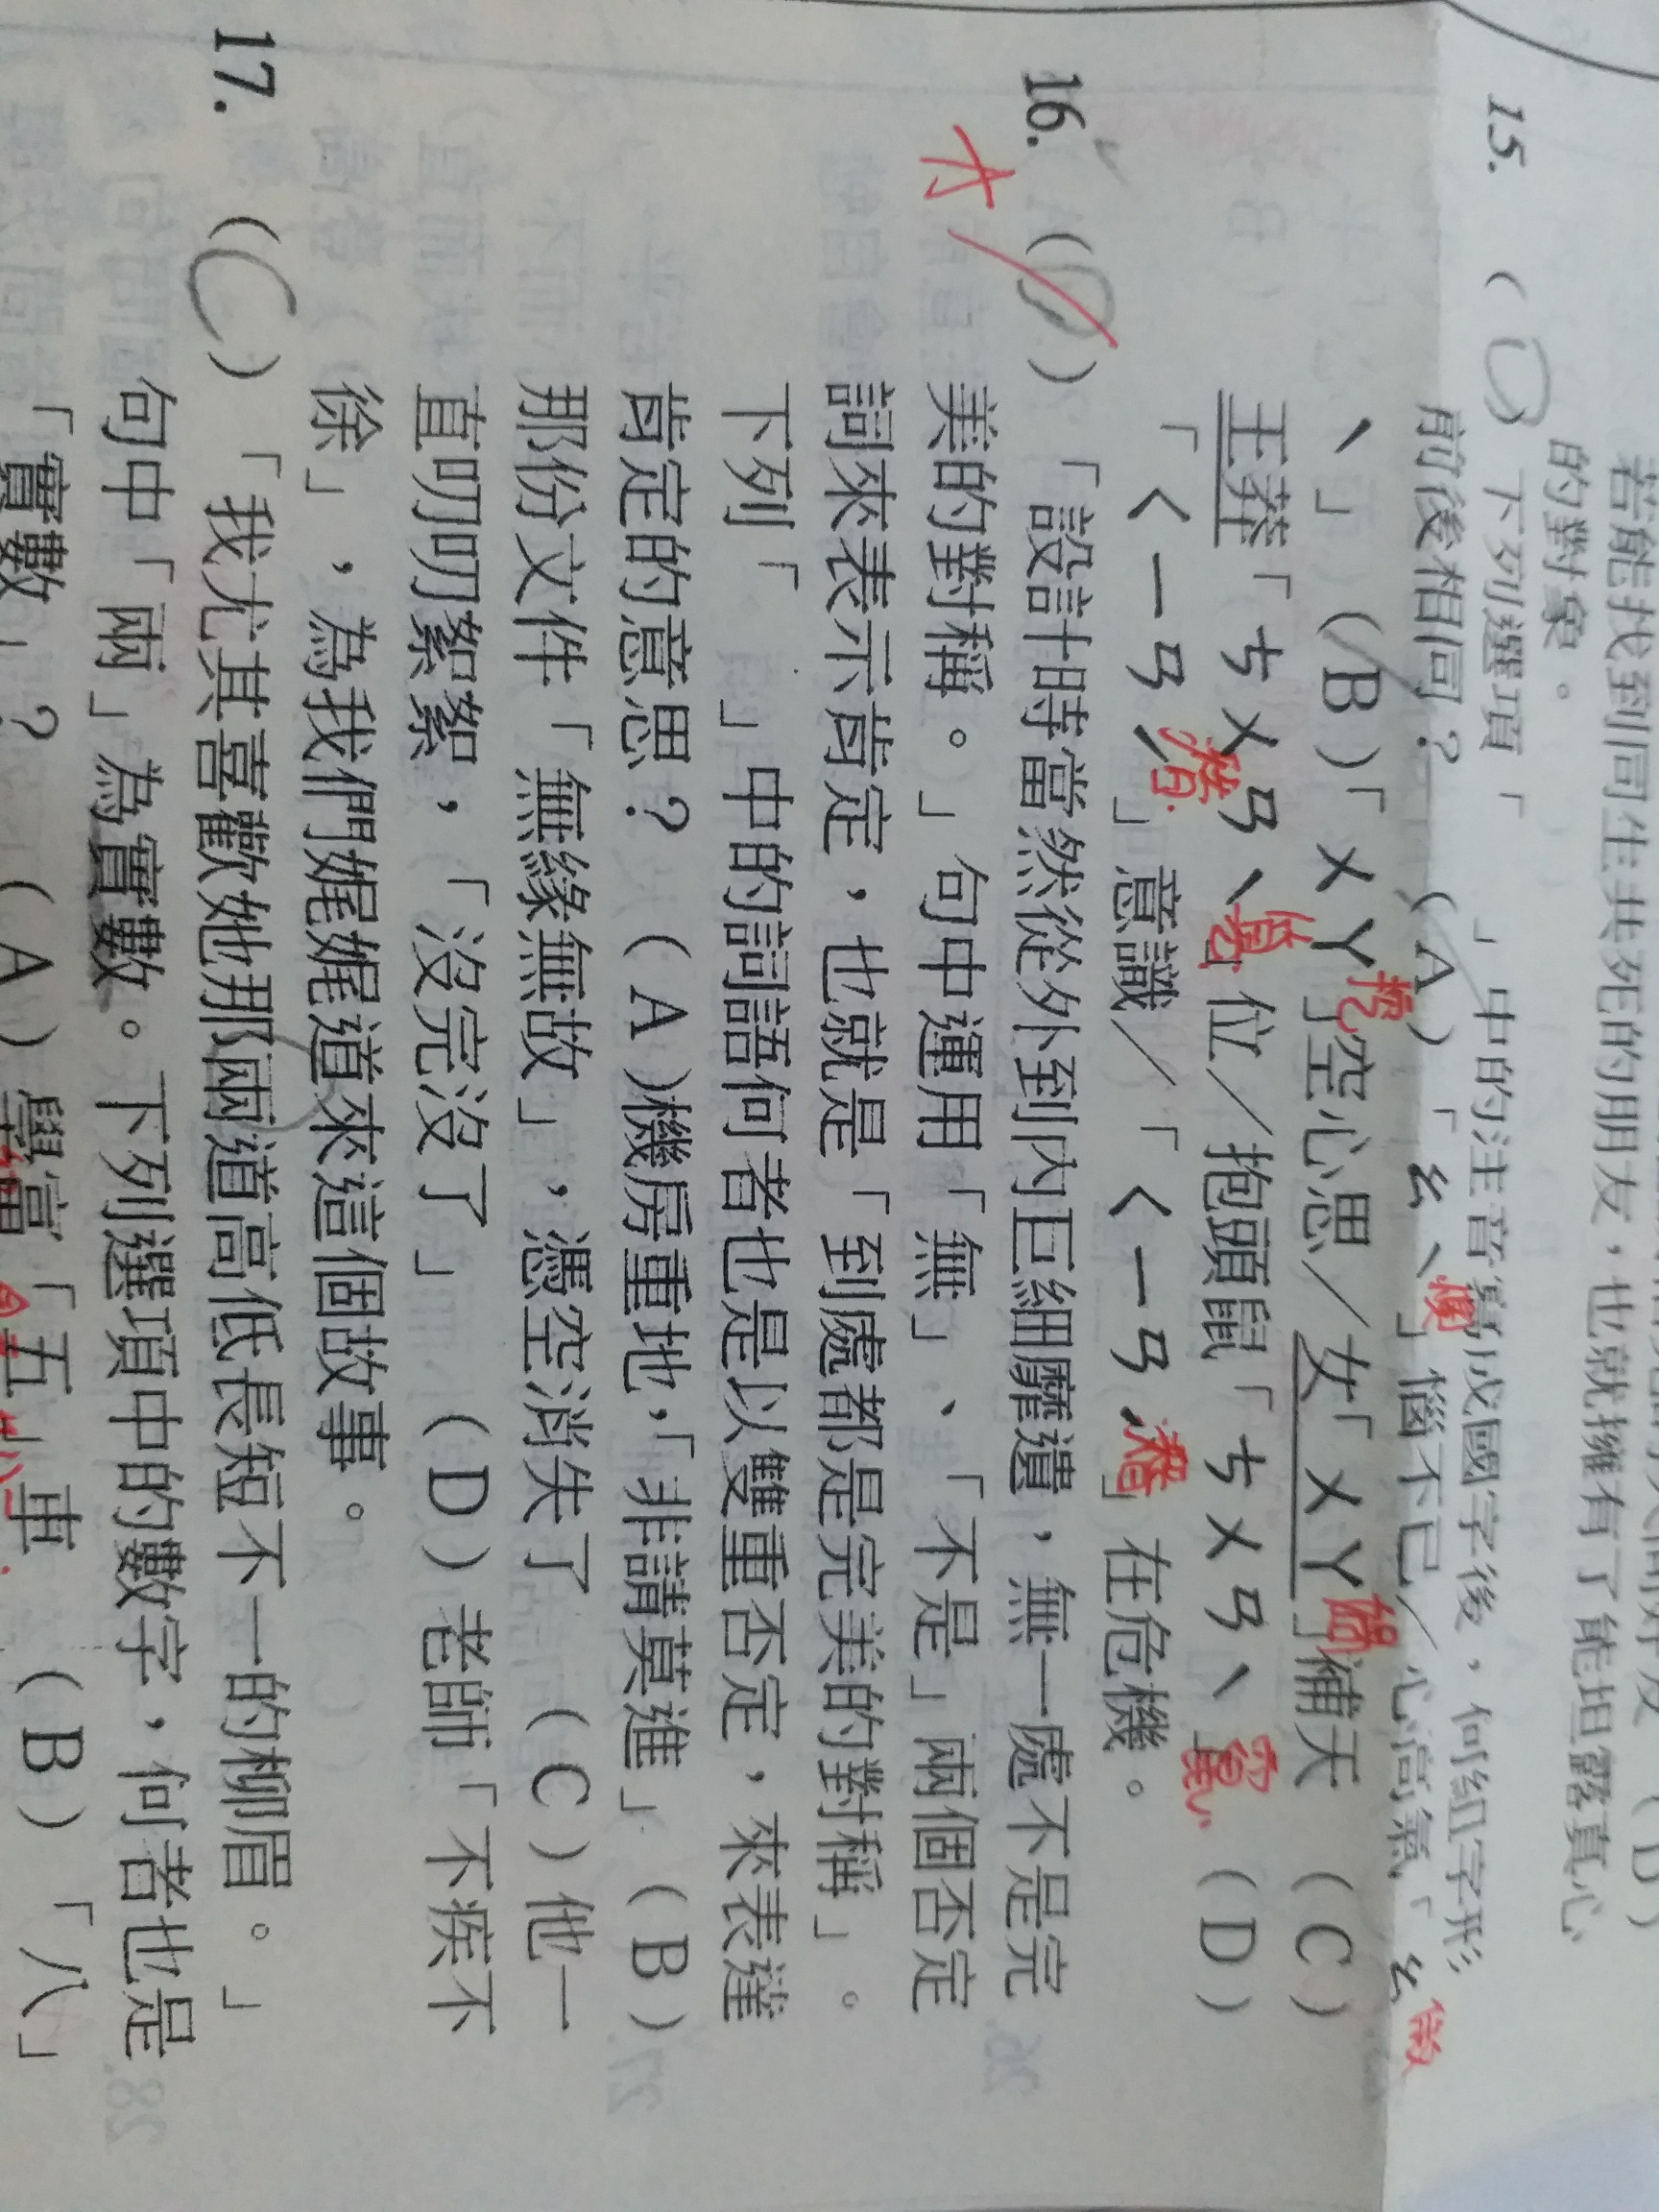 若能找到同生共死的朋友，也就擁有了能坦露真心
的對象。
15. ( ) 下列選項「 」中的注音寫成國字後，何組字形
前後相同？ (A)「ㄠˋ懊」惱不已／心高氣「ㄠ傲
ˋ」 (B)「ㄨㄚ挖」空心思／女「ㄨㄚ媧」補天 (C)
王莽「ㄘㄨㄢˋ篡」位／抱頭鼠「ㄘㄨㄢˋ竄」 (D)
「ㄑㄧㄢˊ」意識／「ㄑㄧㄢˊ潛」在危機。
16. (D) 「設計時當然從外到內巨細靡遺，無一處不是完
美的對稱。」句中運用「無」、「不是」兩個否定
詞來表示肯定，也就是「到處都是完美的對稱」。
下列「 」中的詞語何者也是以雙重否定，來表達
肯定的意思？ (A)機房重地，「非請莫進」 (B)
那份文件「無緣無故」，憑空消失了 (C)他一
直叨叨絮絮，「沒完沒了」 (D)老師「不疾不
徐」，為我們娓娓道來這個故事。
17. (C) 「我尤其喜歡她那兩道高低長短不一的柳眉。」
句中「兩」為實數。下列選項中的數字，何者也是
「實數」？ (A)學富「五」車 (B)「八」